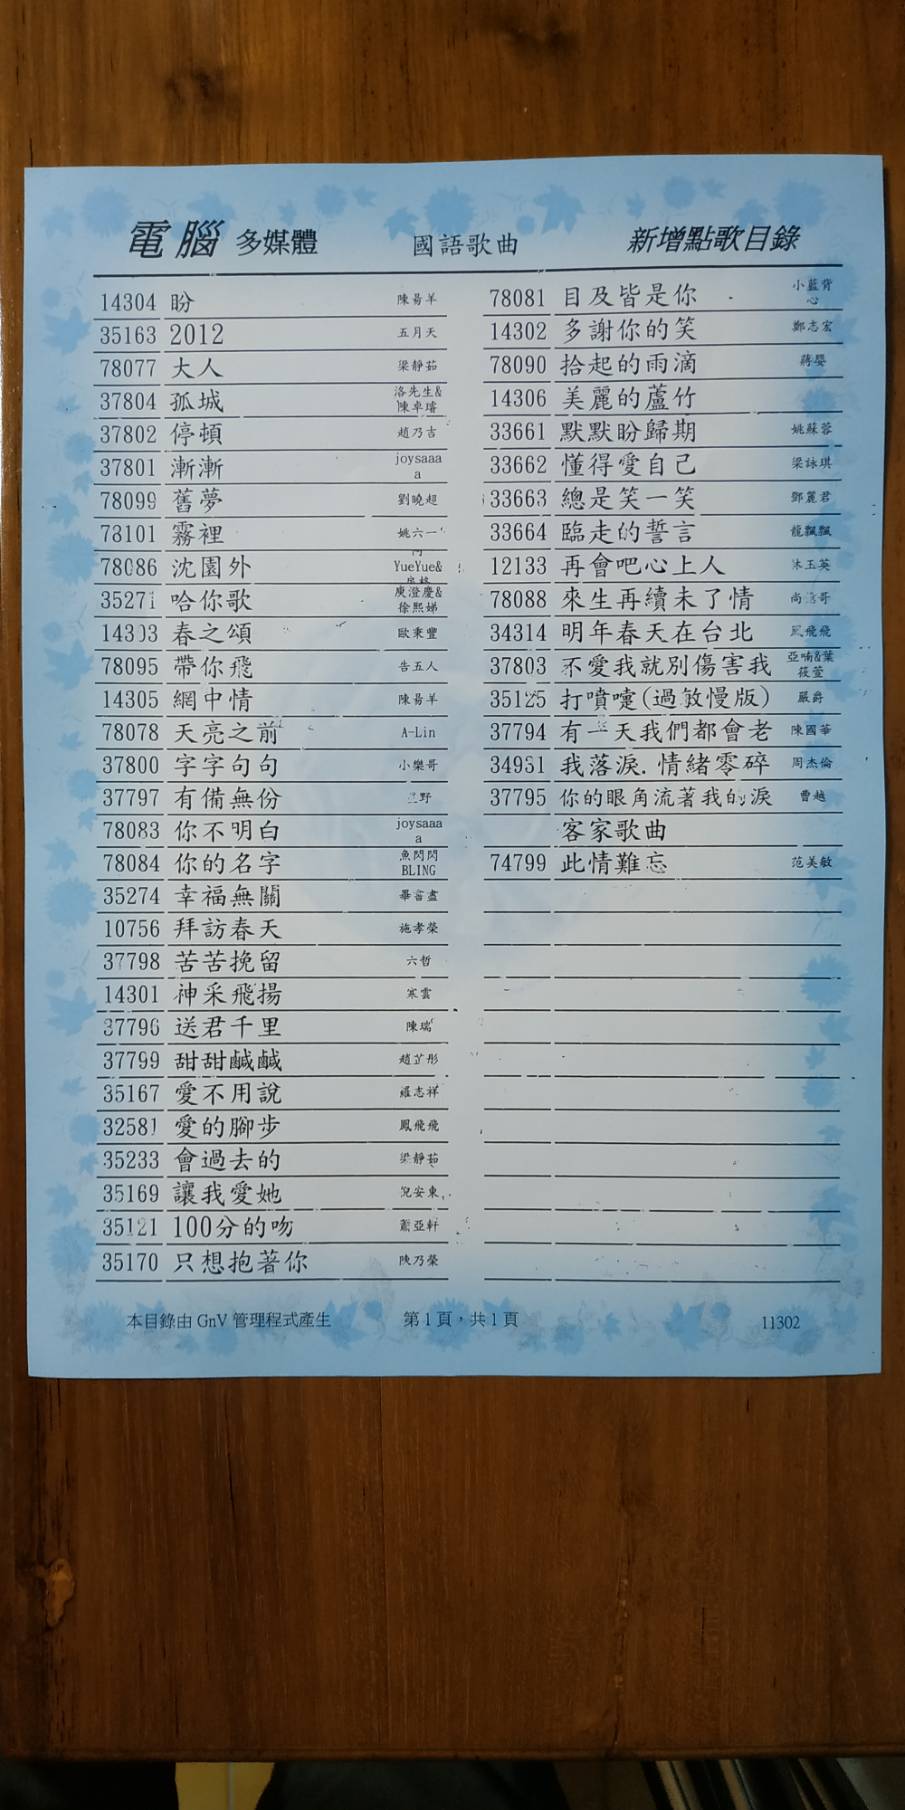 電腦 多媒體 國語歌曲 新增點歌目錄
14304 盼 陳昜羊
35163 2012 五月天
78077 大人 梁靜茹
37804 孤城 洛先生&陳卓璿
37802 停頓 趙乃吉
37801 漸漸 joysaaaa
78099 舊夢 劉曉超
73101 霧裡 姚六一
78086 沈園外 YueYue&
35271 哈你歌 庾澄慶&徐熙娣
14303 春之頌 歐秉豐
78095 帶你飛 告五人
14305 網中情 陳昜羊
78078 天亮之前 A-Lin
37800 字字句句 小樂哥
37797 有備無份 野
78083 你不明白 joysaaaa
78084 你的名字 魚閃閃BLING
35274 幸福無關 畢書盡
10756 拜訪春天 施孝榮
37798 苦苦挽留 六哲
14301 神采飛揚 寒雲
37796 送君千里 陳瑞
37799 甜甜鹹鹹 趙芷彤
35167 愛不用說 羅志祥
32581 愛的腳步 鳳飛飛
35233 會過去的 梁靜茹
35169 讓我愛她 倪安東
35121 100分的吻 蕭亞軒
35170 只想抱著你 陳乃榮
78081 目及皆是你 小藍背心
14302 多謝你的笑 鄭志宏
78090 拾起的雨滴 蔣嬰
14306 美麗的蘆竹
33661 默默盼歸期 姚蘇蓉
33662 懂得愛自己 梁詠琪
33663 總是笑一笑 鄧麗君
33664 臨走的誓言 龍飄飄
12133 再會吧心上人 林玉英
78088 來生再續未了情 尚哥
34314 明年春天在台北 鳳飛飛
37803 不愛我就別傷害我 亞喃&葉筱萱
35125 打噴嚏(過敏慢版) 嚴爵
37794 有一天我們都會老 陳國華
34951 我落淚.情緒零碎 周杰倫
37795 你的眼角流著我的淚 曹越
客家歌曲
74799 此情難忘 范美敏
本目錄由 GnV 管理程式產生 第 1 頁，共 1 頁 11302